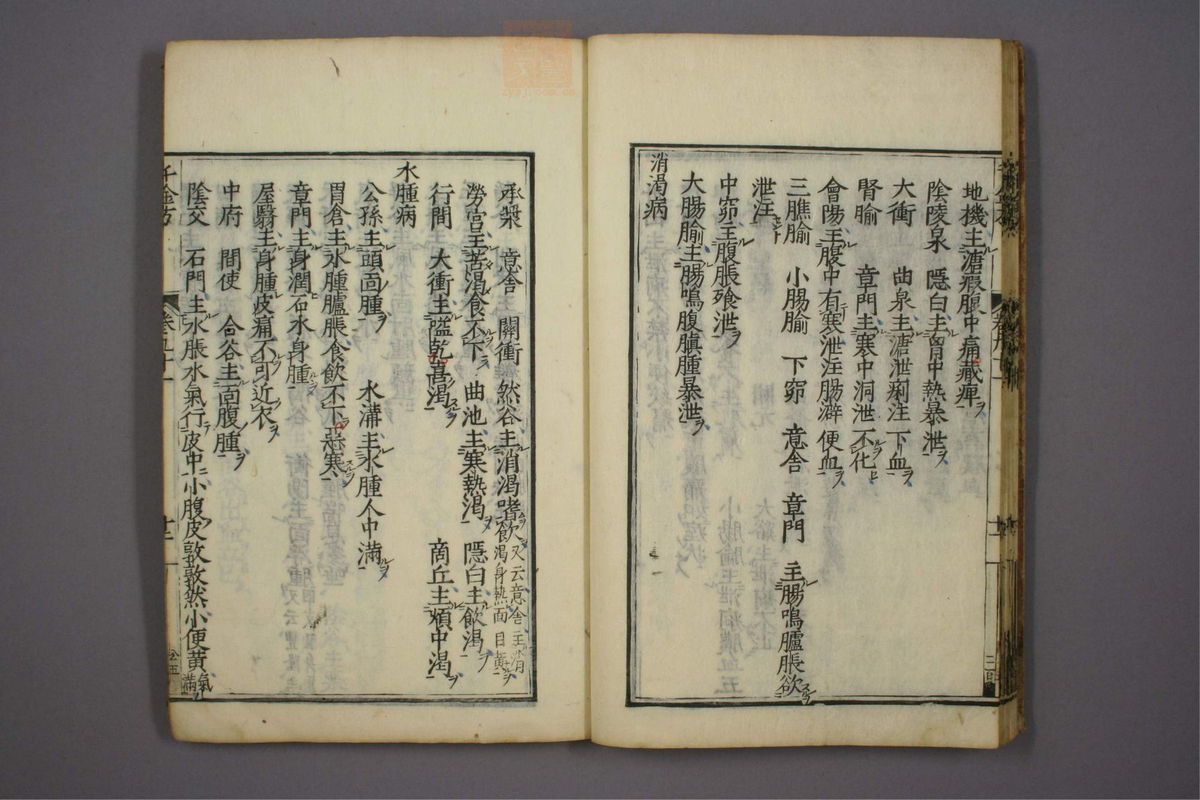 地機主溏瘕腹中痛藏痺
陰陵泉 隱白主胷中熱暴泄
大衝 曲泉主溏泄痢注下血
腎腧 章門主寒中洞泄不化
會陽主腹中有寒泄注腸澼便血
三膲腧 小腸腧 下窌 意舍 章門 主腸鳴臚脹欲
泄注
中窌主腹脹飱泄
大腸腧主腸鳴腹䐜腫暴泄
消渴病
承漿 意舍 關衝 然谷主消渴嗜飲又云意舍主消渴身熱面目黄
勞宫主苦渴食不下 曲池主寒熱渴 隱白主飲渴
行間 大衝主嗌乾髙渴 商丘主煩中渴
水腫病
公孫主頭面腫 水溝主水腫人中滿
胃倉主水腫臚脹食飲不下惡寒
章門主身潤石水身腫
屋翳主身腫皮痛不可近衣
中府 間使 合谷主面腹腫
陰交 石門主水脹水氣行皮中小腹皮敦敦然小便黄氣滿
千金方